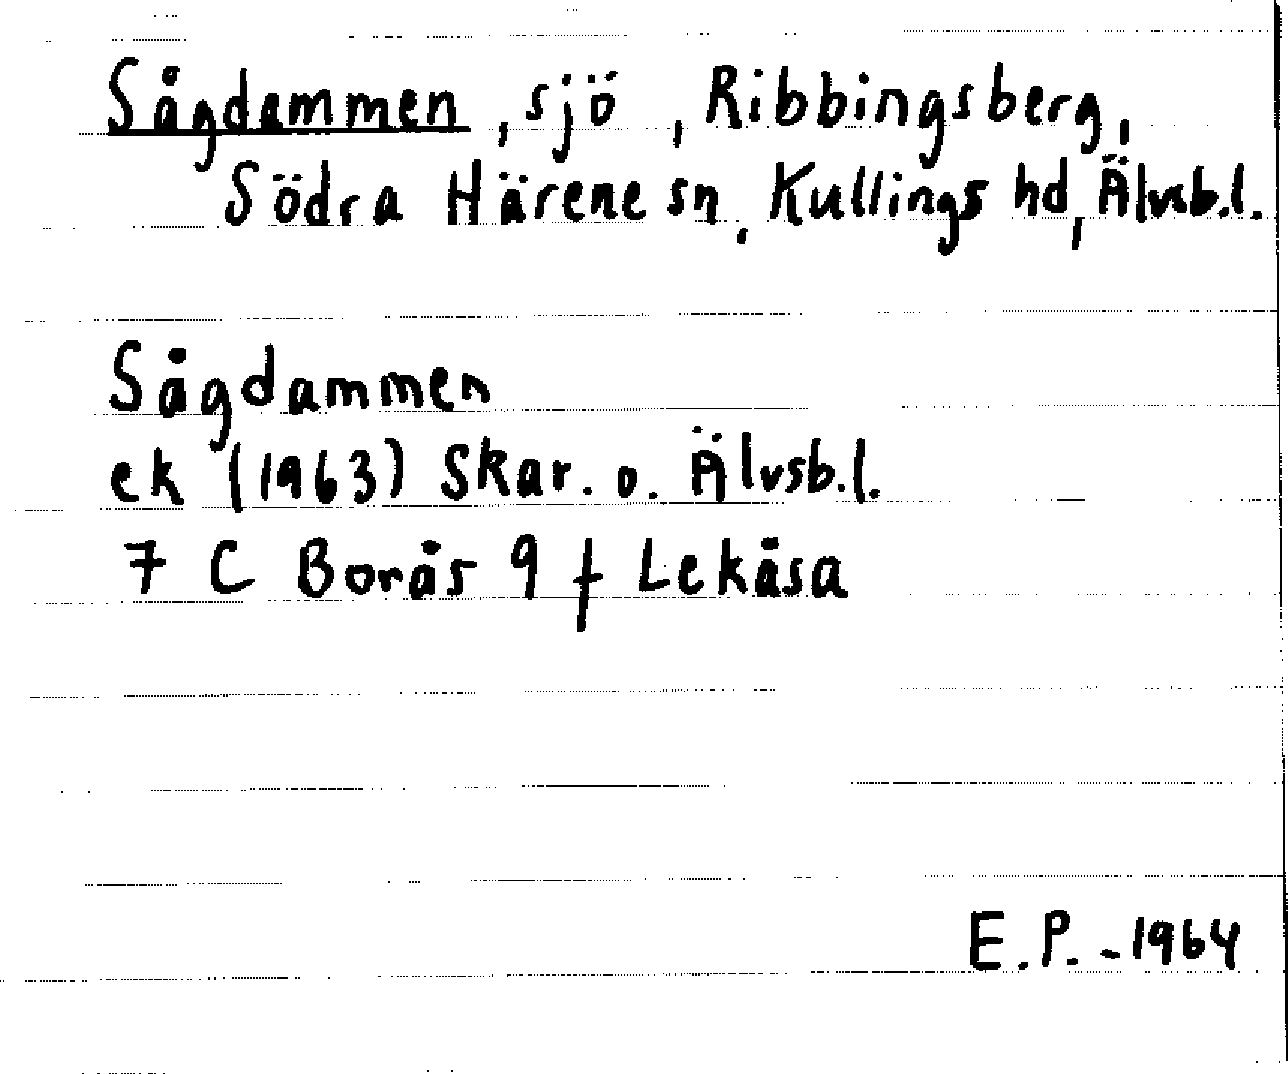 Sågdammen, sjö, Ribbingsberg,
Södra Härene sn, Kullings hd, Älvsb.l.
Sågdammen
ek (1963) Skar. o. Älvsb.l.
7 C Borås 9 f Lekåsa
E.P. - 1964